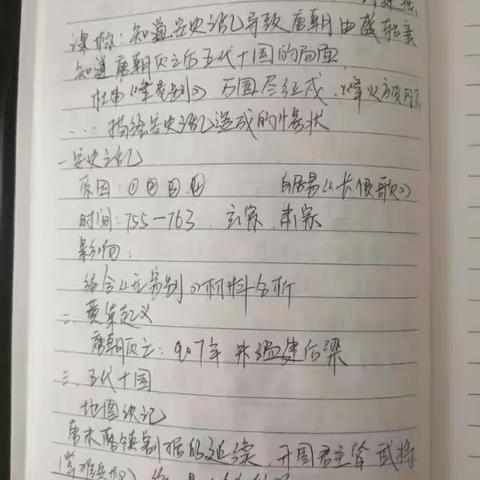 课标：知道安史之乱导致唐朝由盛转衰
知道唐朝灭亡后五代十国的局面
杜甫《垂老别》万国尽征戍，烽火被冈
…描绘安史之乱造成的惨状
一、安史之乱
原因：①②③④ 白居易《长恨歌》
时间：755—763 玄宗、肃宗
影响：
结合《无家别》材料分析
二、黄巢起义
唐朝灭亡：907年 朱温建后梁
三、五代十国
地图识记
唐末藩镇割据的延续，开国君主皆武将